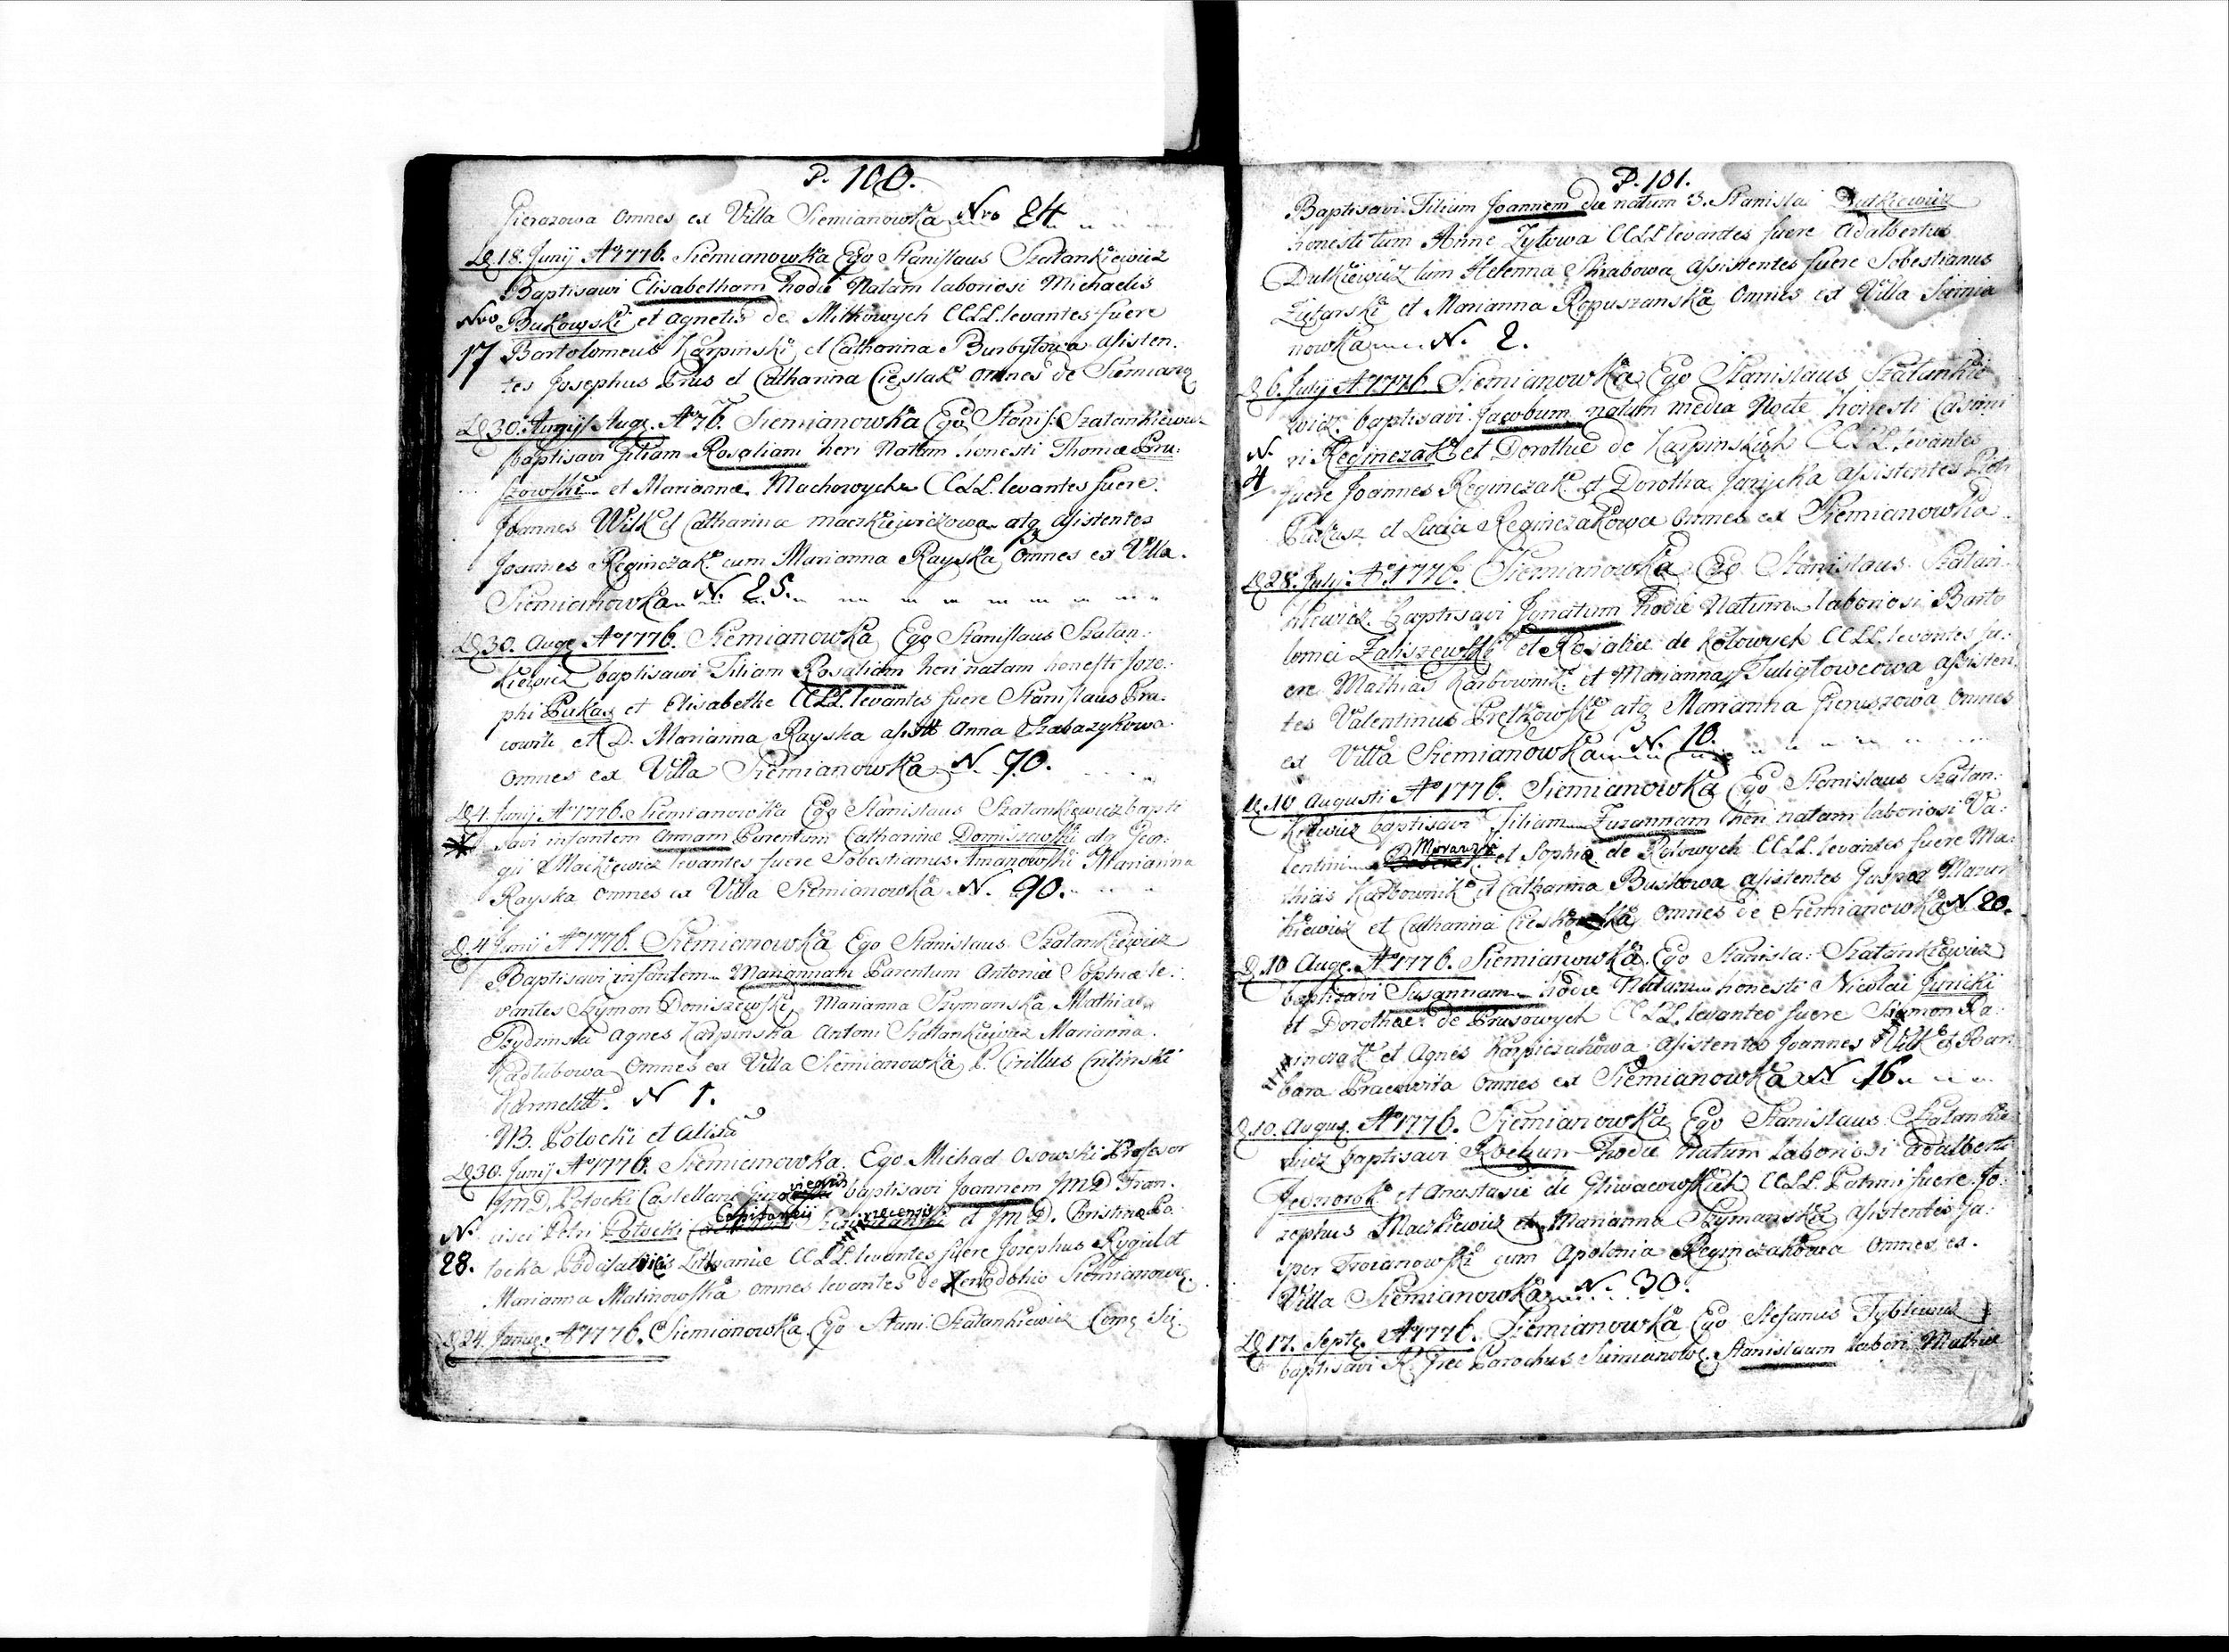 P. 100.
Pierazowa omnes ex Villa Siemianowka Nro 24
D. 18. Junij Ao 1776. Siemianowka Ego Stanislaus Szatankiewicz
Baptisavi Elisabetham hodie Natam laboriosi Michaelis
Nro Bukowski et Agnetis de Mitkowych CCLL. levantes fuere
17 Bartolomeus Karpinski et Catharina Burbytowa assisten.
tes Josephus Prus et Catharina Cieslak omnes de Siemiano
D. 30. Augu Ao 76. Siemianowka Ego Stanis: Szatankiewicz
baptisavi filiam Rosaliam heri Natam honesti Thomæ Pru:
szowski et Mariannæ Machowych CCLL. levantes fuere.
Joannes Wilk et Catharina Maczkiewiczowa atq assistentes
Joannes Reginczak cum Marianna Rayska omnes ex Villa.
Siemianowka N. 25.
D. 30. Aug Ao 1776. Siemianowka Ego Stanislaus Szatan:
kiewicz baptisavi Filiam Rosaliam heri natam honesti Joze:
phi Pukas et Elisabethe CCLL. levantes fuere Stanislaus Pra:
cowiti et D. Marianna Rayska assist Anna Szabazykowa
omnes ex Villa Siemianowka N. 70.
D. 4. Junij Ao 1776. Siemianowka Ego Stanislaus Szatankiewicz bapti
savi infantem Annam Parentum Catharinæ Doniszewski atq Geor:
gii Mackiewicz levantes fuere Sobestianus Amanowski Marianna
Rayska omnes ex Villa Siemianowka N. 90.
D. 4 Junij Ao 1776. Siemianowka Ego Stanislaus Szatankiewicz
Baptisavi infantem Mariannam Parentum Antonii Sophiæ le:
vantes Szymon Doniszewski, Marianna Szymanska Mathias
Agnes Karpinska Antoni Szatankiewicz Marianna.
Kadlubowa omnes ex Villa Siemianowka P. Cirillus
Karmelit. N 1.
NB. Potocki et alish
D. 30. Junij Ao 1776. Siemianowka. Ego Michael Osowski Profesor
JmD. Potocki Castellani baptisavi Joannem JmD Fran.
N. cisci Petri Potocki Capitaneij et JmD. Christina Po.
28. tocka Lithvaniæ CCLL. levantes fuere Josephus Rygul et
Marianna Malinowska omnes levantes de Xenodohio Siemianow
D. 24. Janua. Ao 1776. Siemianowka Ego Stani: Szatankiewicz
P. 101.
Baptisavi Filium Joannem die natum 3. Stanislai Dutkiewicz
honesti tum Anne Zytowa CCLL levantes fuere Adalbertus
Dutkiewicz tum Helenna Skrabowa assistentes fuere Sobestianus
et Marianna Ropuszanska omnes ex Villa Siemia
nowka N. 2.
D. 6. Julij Ao 1776. Siemianowka Ego Stanislaus Szatankie
wicz baptisavi Jacobum natum media Nocte honesti Casimi
N. ri Reginczak et Dorothæ de Karpinskich CCLL. levantes
4 fuere Joannes Reginczak et Dorotha Jurycka assistentes Piotr
Pukasz et Lucia Reginczakowa omnes ex Siemianowka
D. 28. Julij Ao 1776. Siemianowka Ego Stanislaus Szatan:
kiewicz baptisavi Ignatium hodie Natum laboriosi Barto
lomei Zaliszewski et Rosaliæ de Kotowych CCLL. levantes fu:
ere Mathias Karbownik et Marianna Tuliglowcowa assisten:
tes Valentinus Pretkowski atq Marianna Pieruszowa omnes
ex Villa Siemianowka N. 10.
D. 10 Augusti Ao 1776. Siemianowka Ego Stanislaus Szatan:
kiewicz baptisavi Filiam Zuzannam heri natam laboriosi Va:
lentini et Sophiæ de Rylowych CCLL. levantes fuere Ma:
thias Karbownik et Catharina Buskowa assistentes Gasper Mazur
kiewicz et Catharina omnes de Siemianowka N 20.
D. 10 Aug. Ao 1776. Siemianowka. Ego Stanisla: Szatankiewicz
baptisavi Susannam hodie Natam honesti Nicolai Juricki
et Dorotheæ de Prusowych CCLL. levantes fuere Szimon Ra:
et Agnes Karpiczakowa assistentes Joannes Wilk et Bar
bara Pracowita omnes ex Siemianowka N 16
D. 10. Augus. Ao 1776. Siemianowka Ego Stanislaus Szatankie
wicz baptisavi Rochum hodie Natum Laboriosi Adalberti
et Anastasiæ de CCLL. Patrini fuere Jo:
zephus Maczkiewicz et Marianna Szymanska assistentes Ga:
sper Troianowski cum Apolonia Reginczakowa omnes ex.
Villa Siemianowka N. 30.
D. 17. Septe Ao 1776. Siemianowka Ego Stefanus
baptisavi Parochus Siemianow. Stanislaum labori Mathiæ